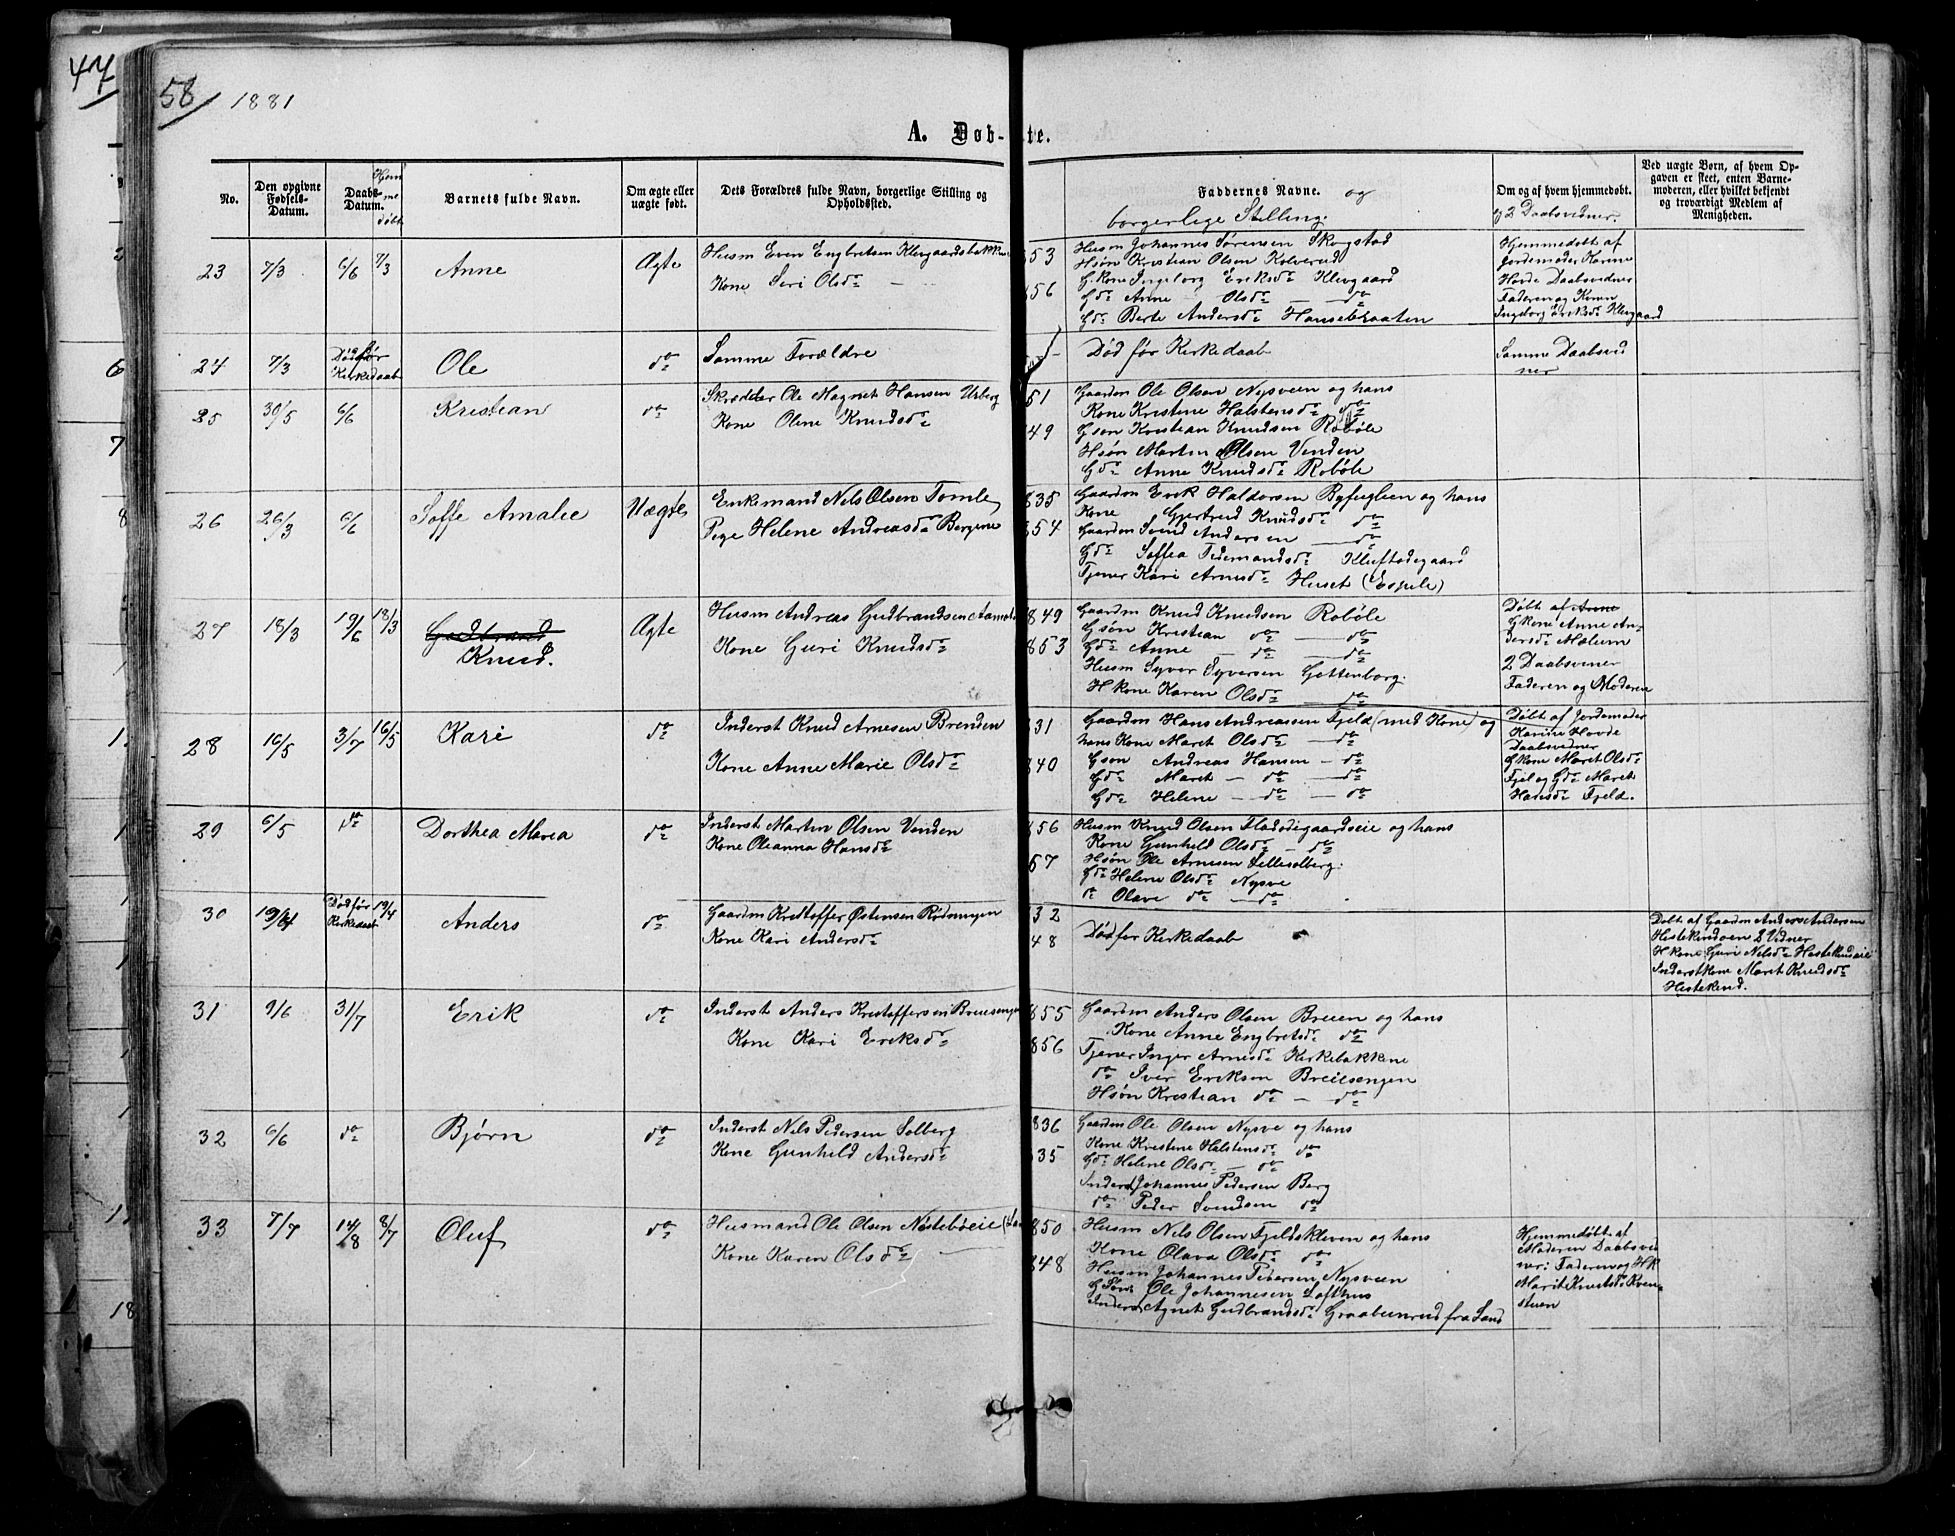 47
58 1881
A. Døb-te.
No.
Den opgivne
Fødsels-
Datum.
Daabs-
Datum.
Hjem
me
døbt
Barnets fulde Navn.
Om ægte eller
uægte født.
Dets Forældres fulde Navn, borgerlige Stilling og
Opholdssted.
Faddernes Navne. og
borgerlige Stilling.
Om og af hvem hjemmedøbt.
og 2 Daabsvidner.
Ved uægte Børn, af hvem Op-
gaven er skeet, enten Barne-
moderen, eller hvilket bekjendt
og troværdigt Medlem af
Menigheden.
23 7/3 6/6 7/3 Anne Ægte
Husm Even Engbretsen Klevgaardsbakken
Kone Siri Olsdr
853
856
Husm Johannes Sørensen Skogstad
Hsøn Kristian Olsen Kolverud
G.kone Ingeborg Eriksdr Klevgaard
Gdr Anne Olsdr — do
Gdr Berte Andersdr Hansebraaten
Hjemmedøbt af
Jordemoder Karine
Hovde Daabsvidner
Faderen og Konen
Ingeborg Eriksdr Klevgaard
24 7/3 Død før
Kirkedaab Ole do
Samme Forældre
Død før Kirkedaab
Samme Daabsvid
ner
25 30/5 6/6 Kristian do
Skrædder Ole Magnet Hansen Urberg
Kone Oline Knudsdr
51
49
Gaardm Ole Olsen Nysveen og hans
Kone Kristine Halstensdr do
Gson Kristian Knudsen Robøle
Hsøn Martin Olsen Vinden
Gdr Anne Knudsdr Robøle
26 26/3 6/6 Soffe Amalie Uægte
Enkemand Nils Olsen Tomle
Pige Helene Andreasdr Bergene
835
854
Gaardm Erik Haldorsen Byfuglien og hans
Kone Gjertrud Knudsdr do
Gaardm Svend Andersen — do
Gdr Soffea Tidemandsdr Kluftødegaard
Tjener Kari Arnesdr Huset (Espele)
27 18/3 19/6 18/3 Gudbrand
Knud. Ægte
Husm Andreas Gudbrandsen Aamot
Kone Guri Knudsdr
849
853
Gaardm Knud Knudsen Robøle
Gsøn Kristian do — do
Gdr Anne — do — do
Husm Syver Syversen Gottenborg.
H kone Karen Olsdr do
Døbt af Anne
Gkone Anne An-
dersdr Mælum
2 Daabsviner
Faderen og Moderen
28 16/5 3/7 16/5 Kari do
Inderst Knud Arnesen Brenden
Kone Anne Marie Olsdr
31
840
Gaardm Hans Andreassen Fjeld (med Kone) og
hans Kone Maret Olsdr — do
Gson Andreas Hansen — do
Gdr Maret — do — do
Gdr Helene — do — do
Døbt af Jordemoder
Karine Hovde
Daabsvidner
Gkone Maret Olsdr
Fjel og Gdr Maret
Hansdr Fjeld.
29 6/5 do Dorthea Marea do
Inderst Martin Olsen Vinden
Kone Oleanna Hansdr
856
57
Husm Knud Olsen Fladødegaardseie og hans
Kone Gunhild Olsdr — do
Hsøn Ole Arnesen Lillesolberg.
Gdr Helene Olsdr Nysve
do Olave do — do
30 19/4 Død før
Kirkedaab 19/4 Anders do
Gaardm Kristoffer Østensen Rødningen
Kone Kari Andersdr
32
48
Død før Kirkedaab
Døbt af Gaardm Anders Andersen
Hestekindoen 2 Vidner
H kone Guri Nelsdr Hestekindeie
Inderstkone Maret Knudsdr
Hestekind.
31 9/6 31/7 Erik do
Inderst Anders Kristoffersen Breiesengen
Kone Kari Eriksdr
855
856
Gaardm Anders Olsen Breien og hans
Kone Anne Engbretsdr do
Tjener Inger Arnesdr Kirkebakkene
do Iver Eriksen Breiesengen
Hsøn Kristian do — do
32 6/6 do Bjørn do
Inderst Nils Pedersen Solberg
Kone Gunhild Andersdr
836
835
Gaardm Ole Olsen Nysve og hans
Kone Kristine Halstensdr do
Gdr Helene Olsdr — do
Inderst Johannes Pedersen Berg
do Peder Svendsen do
33 7/7 14/8 8/7 Oluf do
Husmand Ole Olsen Nøstebøeie
Kone Karen Olsdr
850
848
Husm Nels Olsen Fjeldskleven og hans
Kone Olava Olsdr do
Husm Johannes Pedersen Nysveen
G Søn Ole Johannesen Lofthus
Inderst Agnet Gudbrandsdr Graabeinrud fra Land
Hjemmedøbt af
Moderen Daabsvid
ner: Faderen og HK
Marit Knutsdr Kven-
stuen